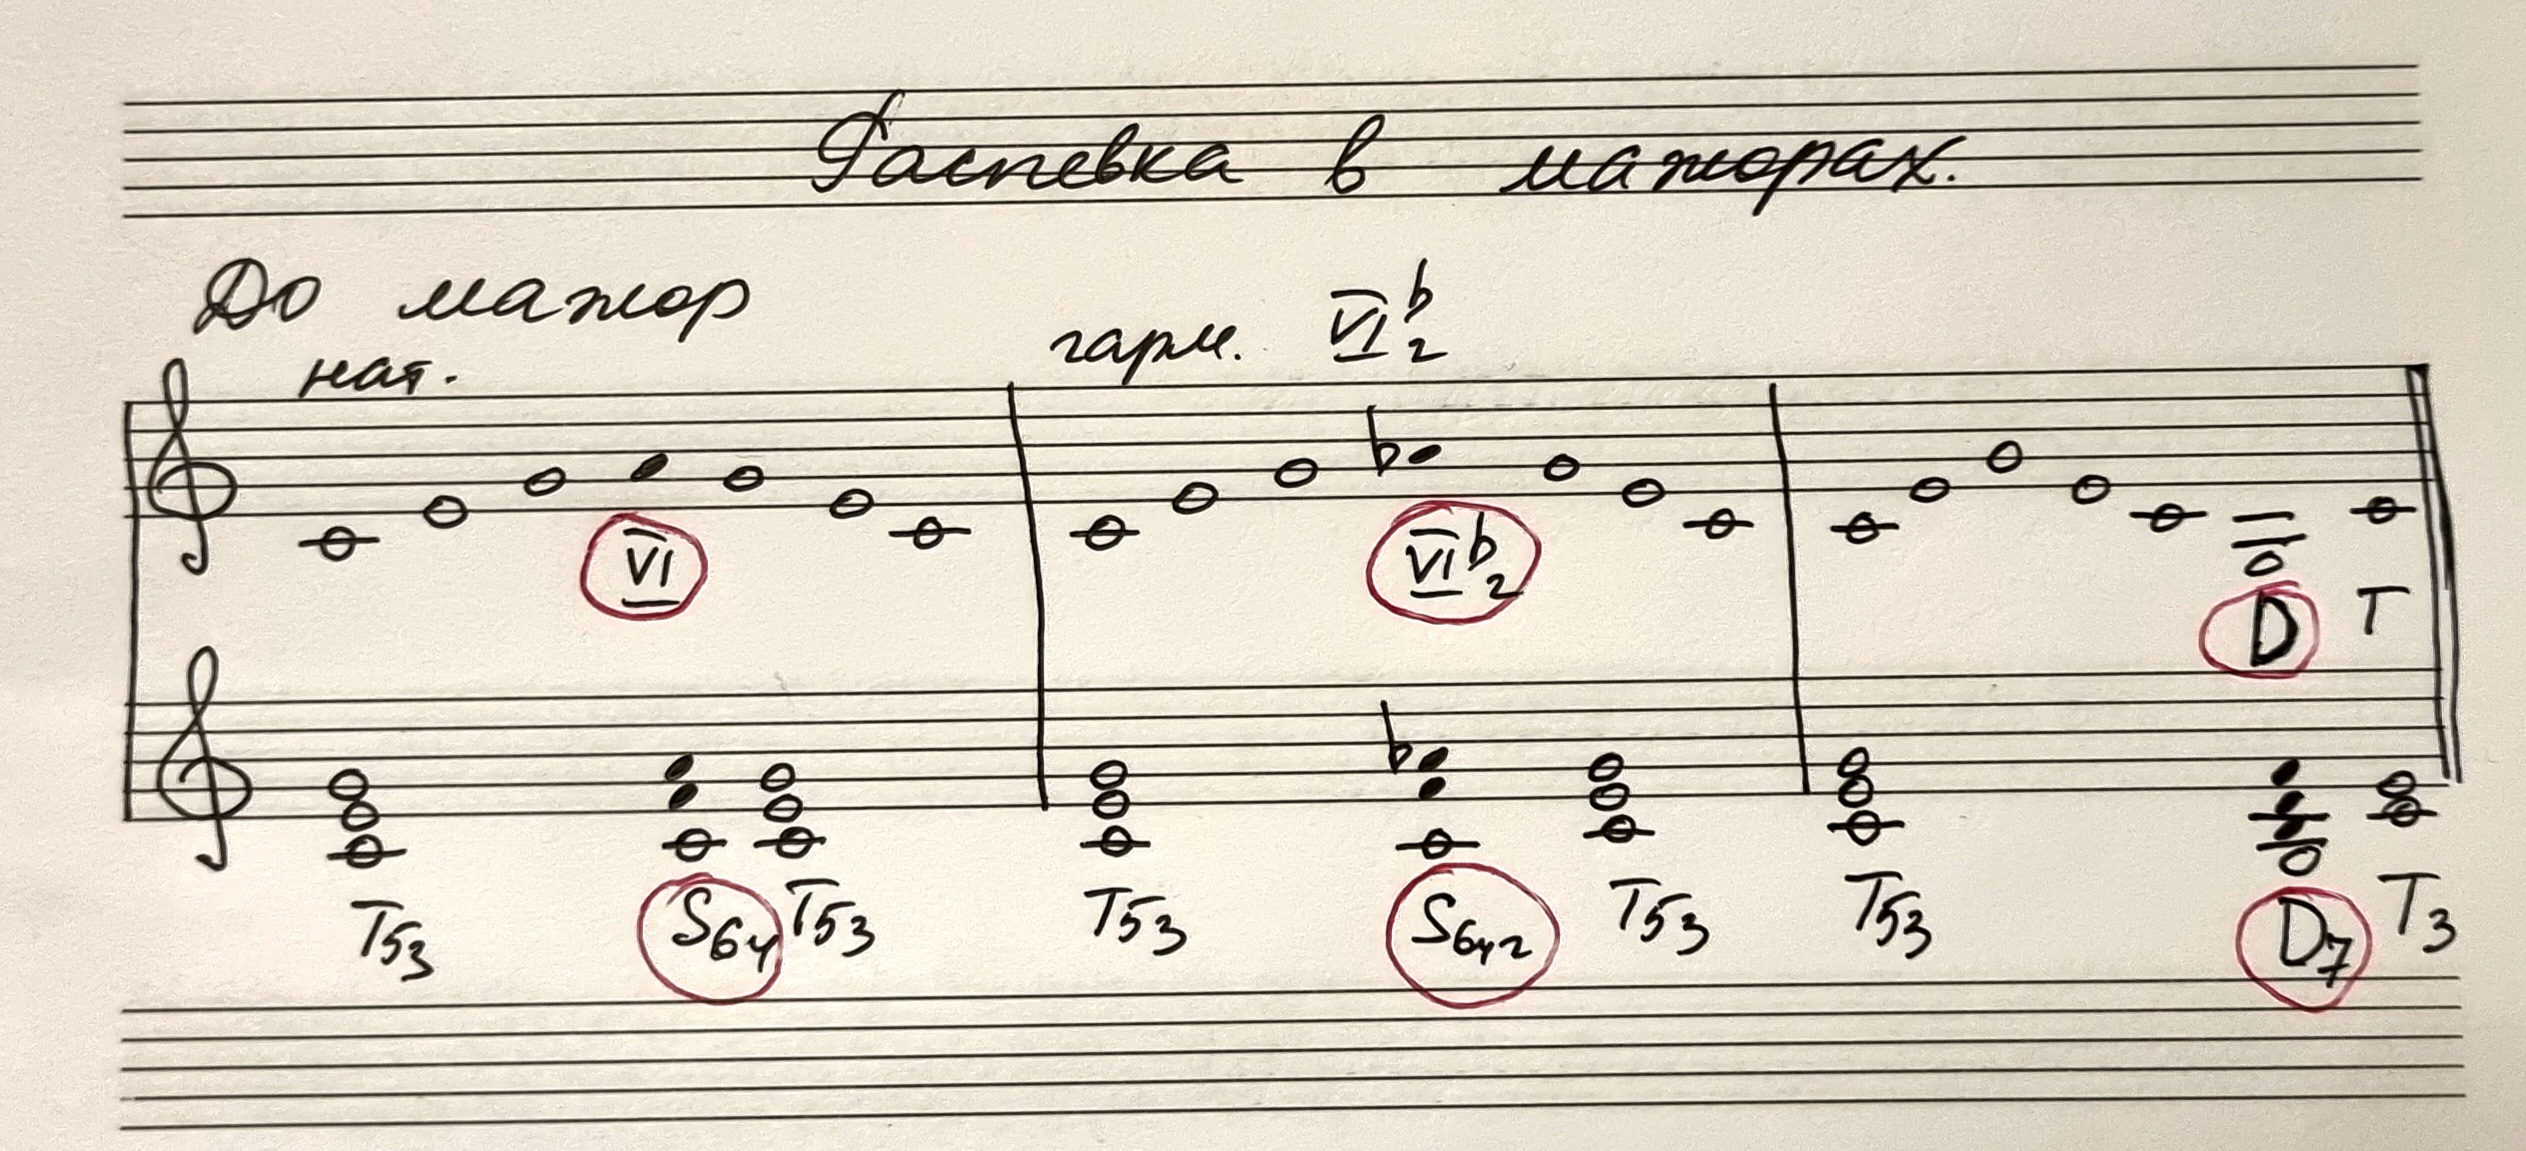 Распевка в мажорах.
До мажор
нат.
гарм. VI♭2
VI
VI♭2
D T
T53 S64 T53 T53 S6ч2 T53 T53 D7 T3